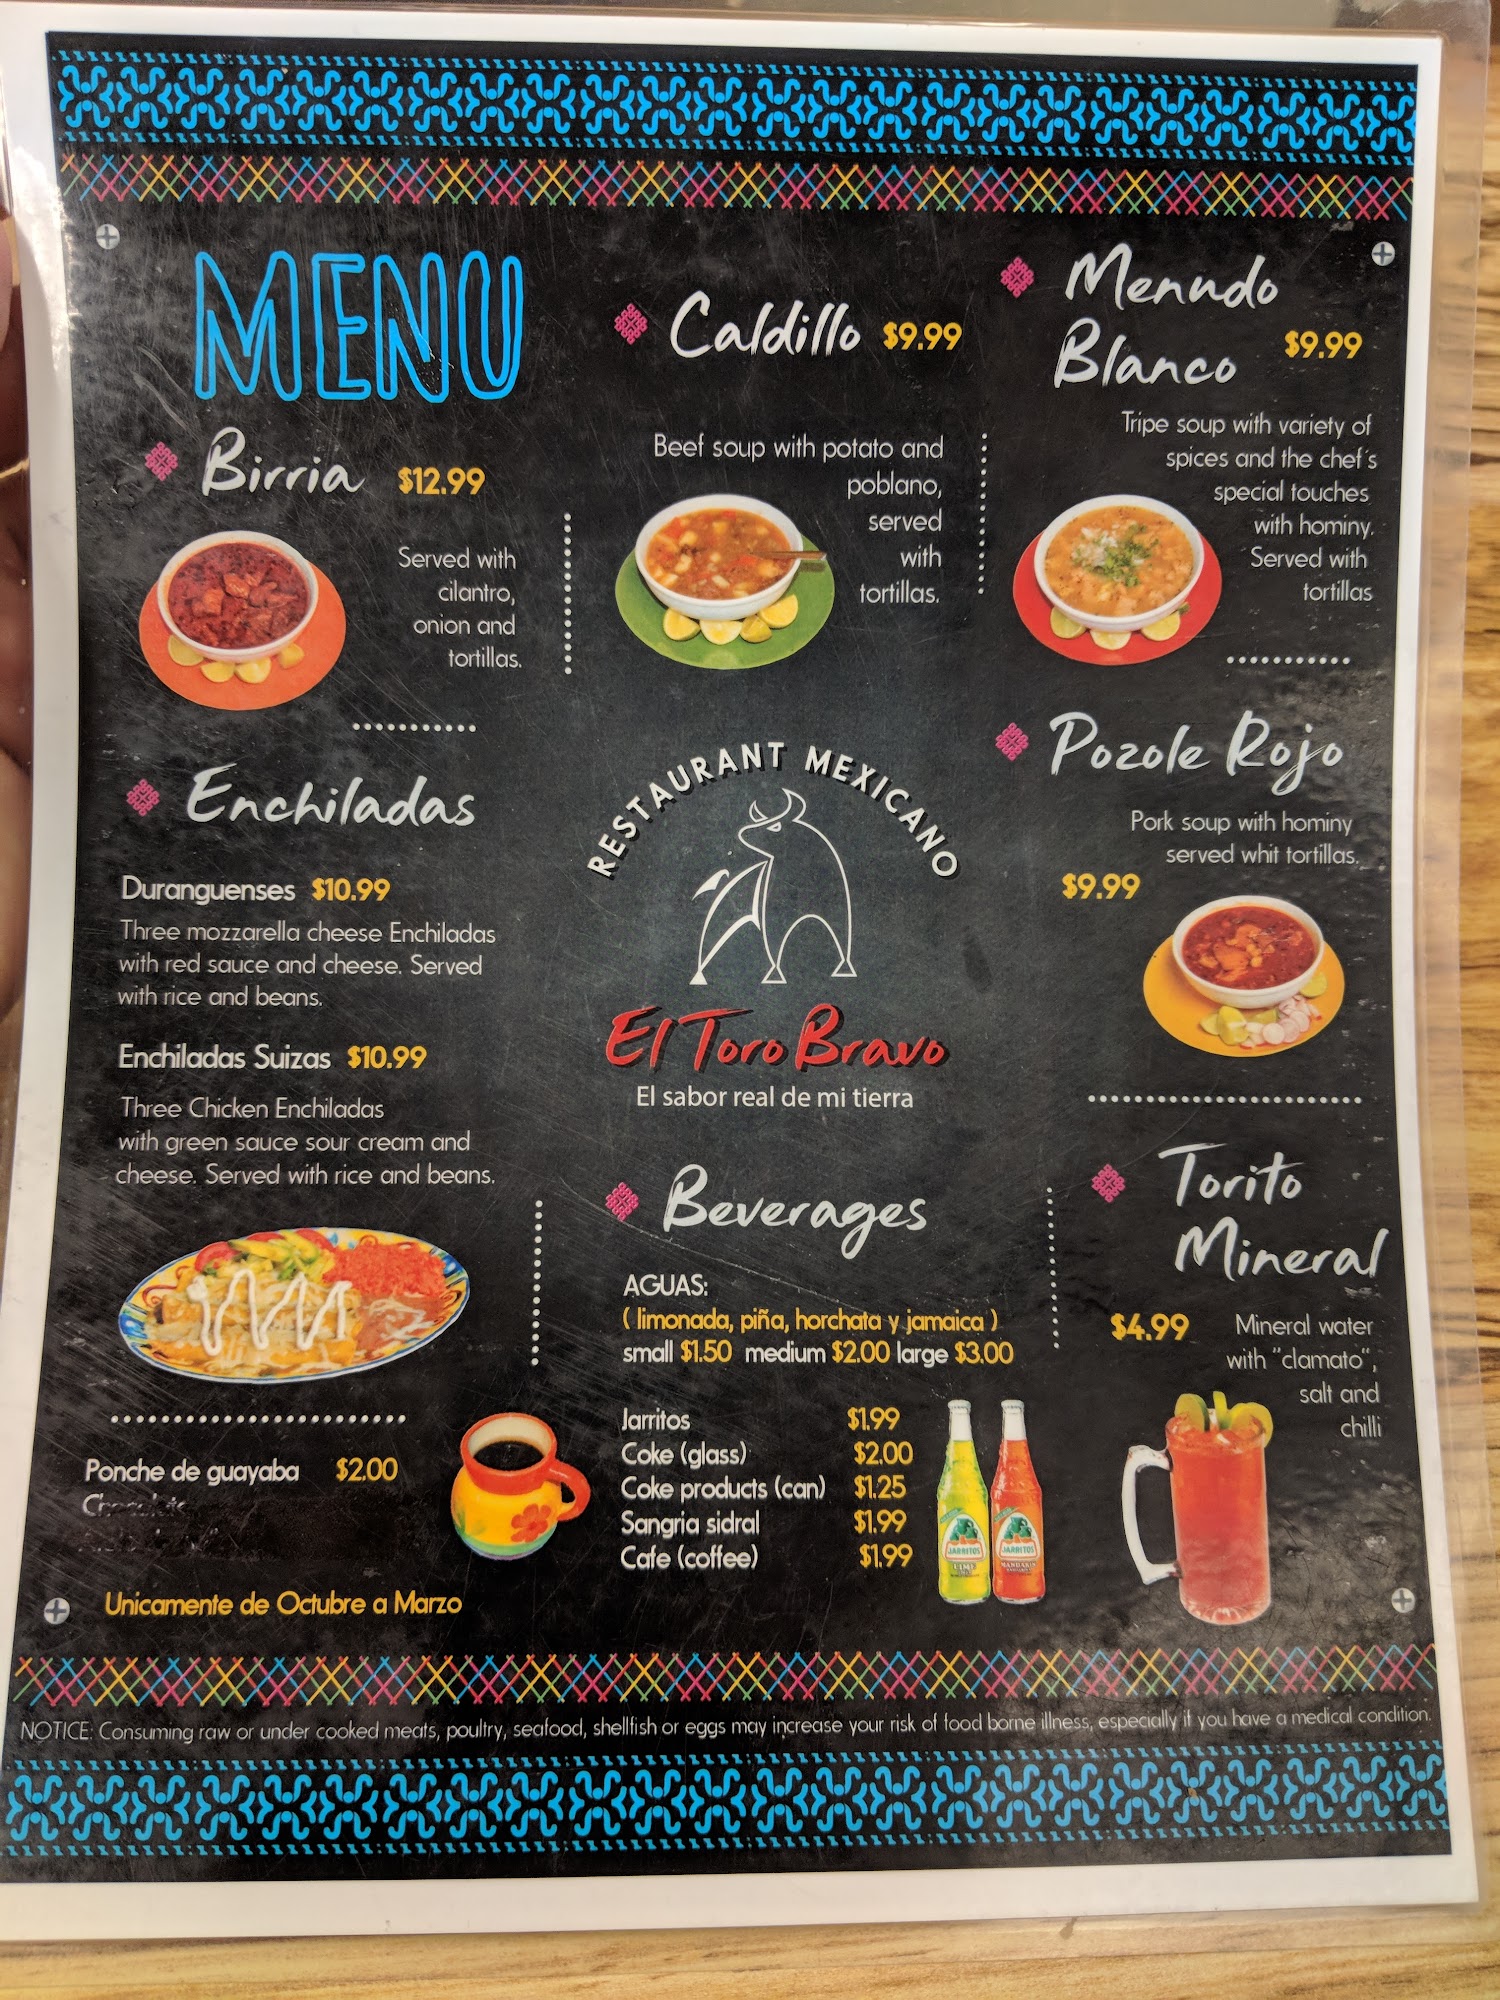 MENU
Birria $12.99
Served with
cilantro,
onion and
tortillas.
Caldillo $9.99
Beef soup with potato and
poblano,
served
with
tortillas.
Menudo
Blanco $9.99
Tripe soup with variety of
spices and the chef's
special touches
with hominy.
Served with
tortillas
Enchiladas
Duranguenses $10.99
Three mozzarella cheese Enchiladas
with red sauce and cheese. Served
with rice and beans.
Enchiladas Suizas $10.99
Three Chicken Enchiladas
with green sauce sour cream and
cheese. Served with rice and beans.
RESTAURANT MEXICANO
El Toro Bravo
El sabor real de mi tierra
Pozole Rojo
Pork soup with hominy
served whit tortillas.
$9.99
Ponche de guayaba $2.00
Unicamente de Octubre a Marzo
Beverages
AGUAS:
( limonada, piña, horchata y jamaica )
small $1.50 medium $2.00 large $3.00
Jarritos $1.99
Coke (glass) $2.00
Coke products (can) $1.25
Sangria sidral $1.99
Cafe (coffee) $1.99
JARRITOS
JARRITOS
Torito
Mineral
$4.99 Mineral water
with "clamato",
salt and
chilli
NOTICE: Consuming raw or under cooked meats, poultry, seafood, shellfish or eggs may increase your risk of food borne illness, especially if you have a medical condition.